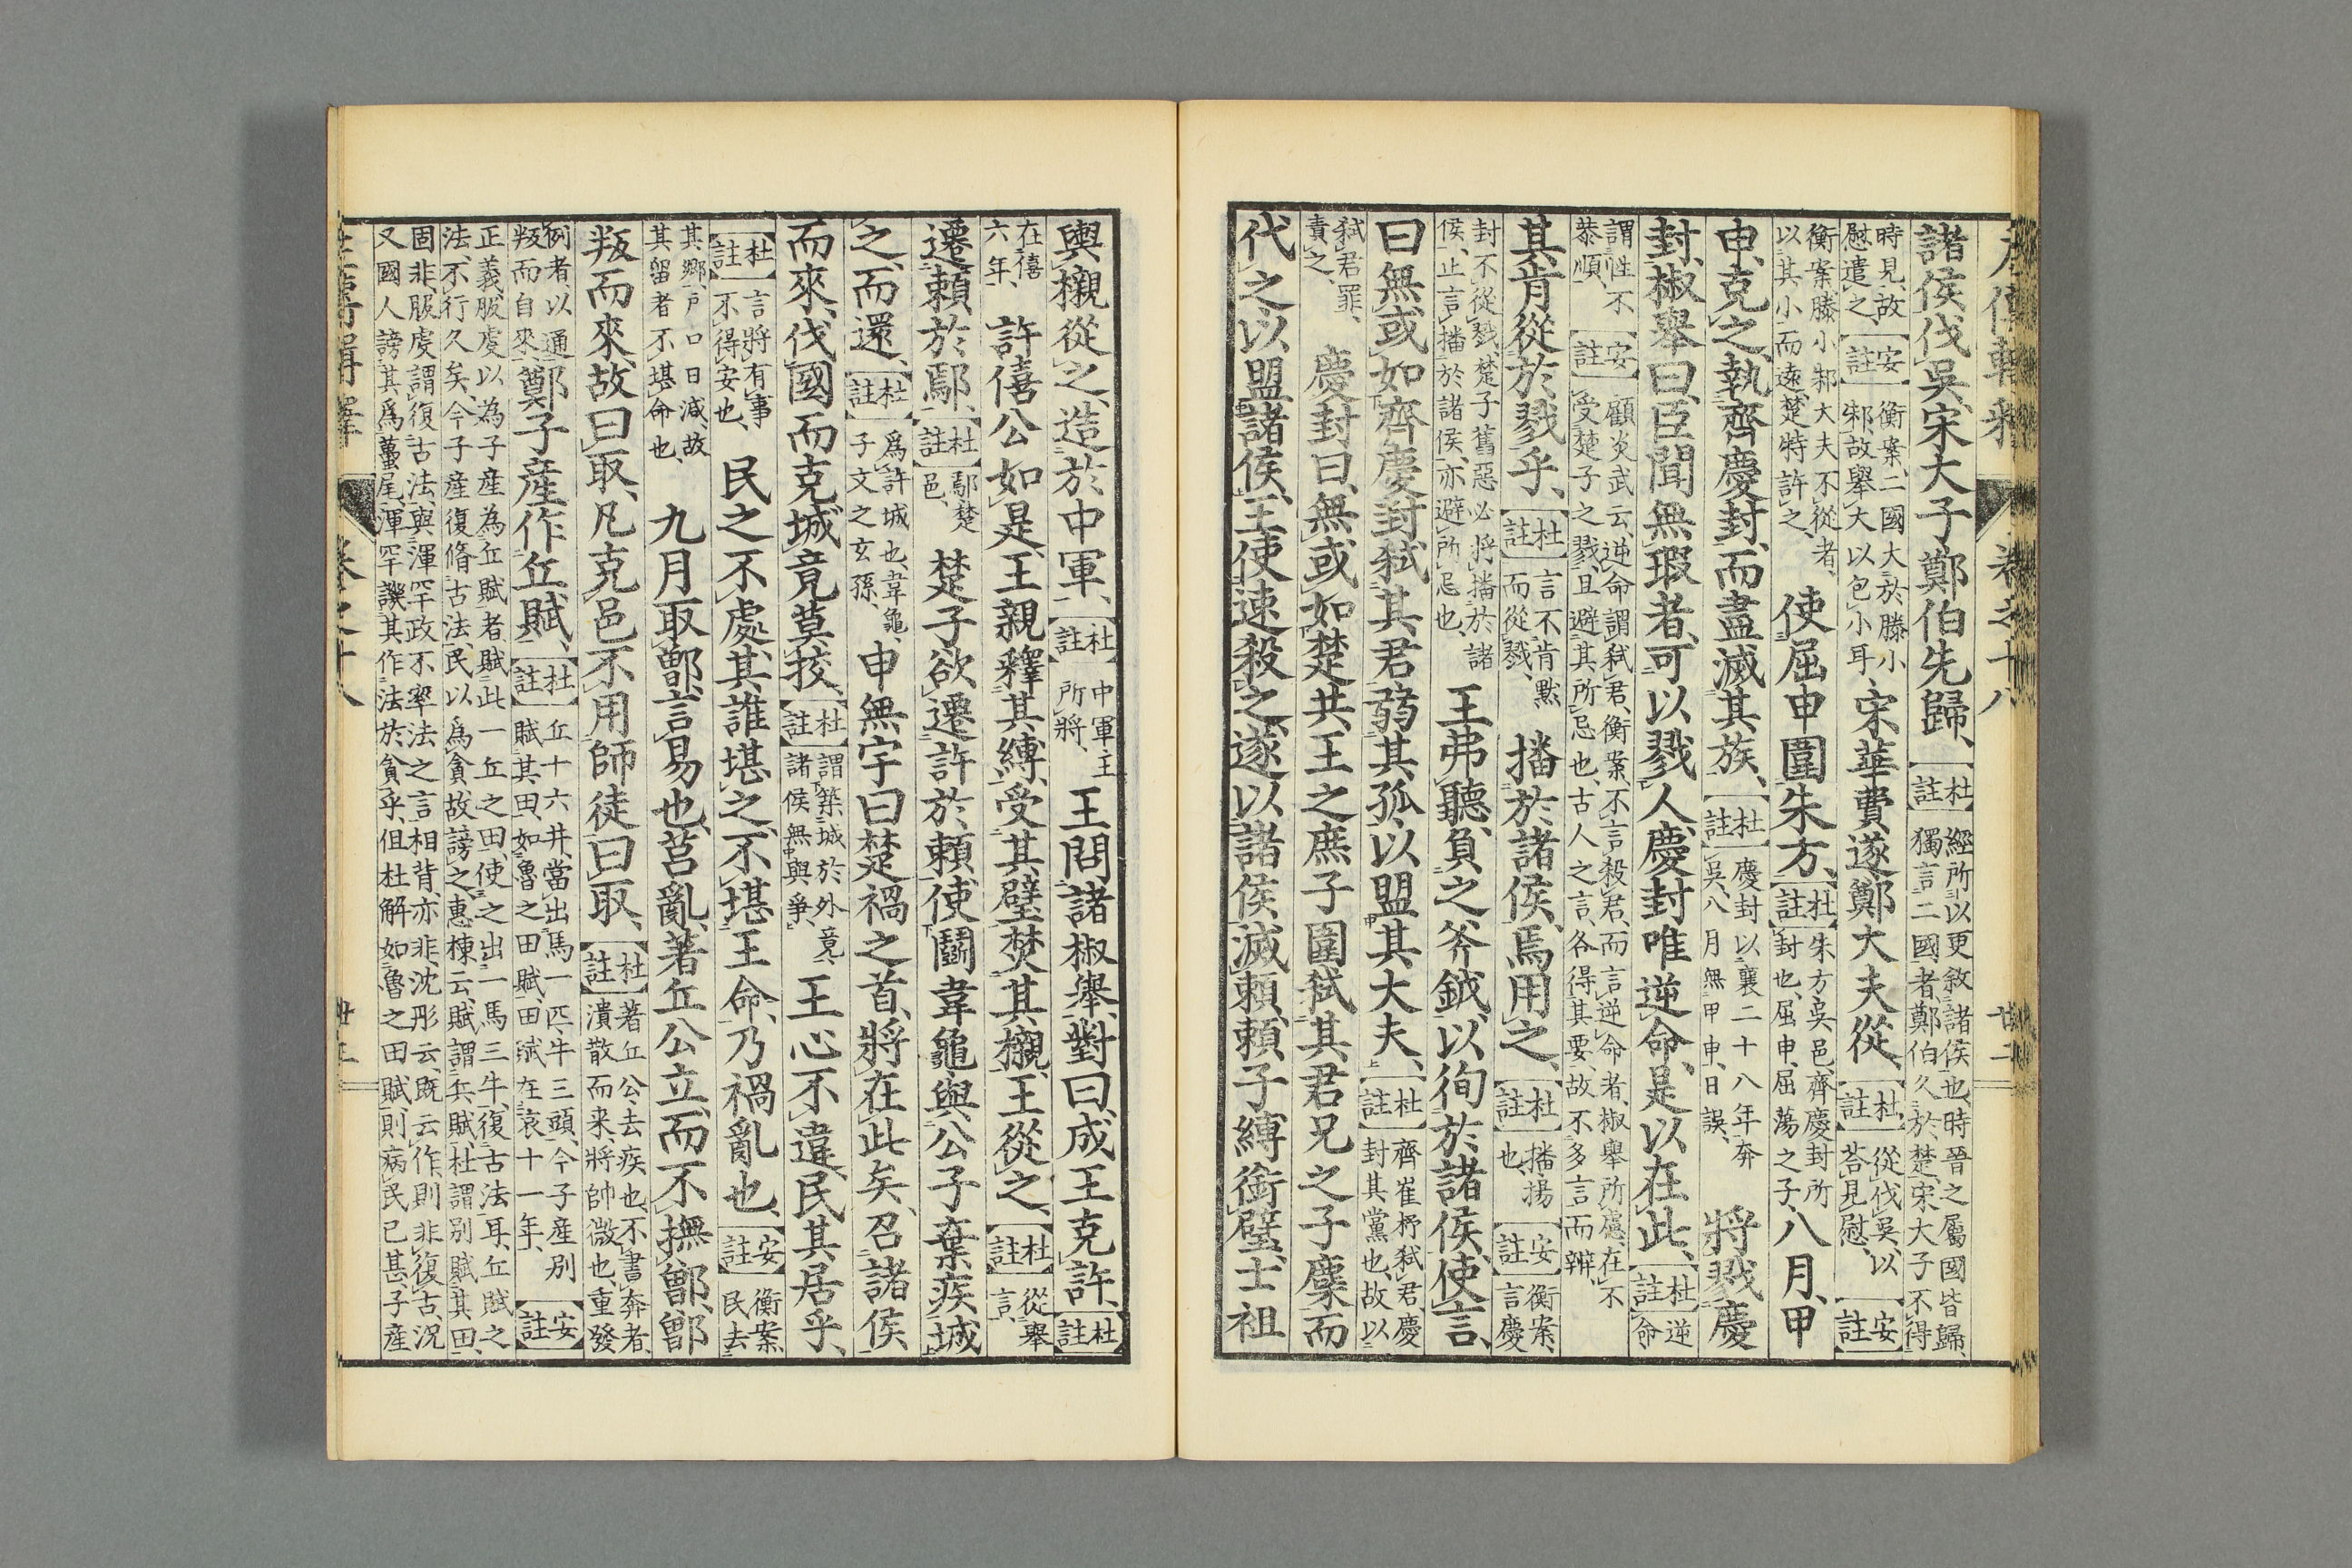 左傳輯釋 卷之十八 廿二
諸侯伐吳、宋大子鄭伯先歸、【杜註】經所以更敘諸侯也、時晉之屬國皆歸、獨言二國者、鄭伯久於楚、宋大子不得
時見、故慰遣之、【安註】衡案、二國大於滕小邾、故舉大以包小耳、宋華費遂鄭大夫從、【杜註】從伐吳、以荅見慰、【安註】
衡案滕小邾大夫不從者、以其小而遠、楚特許之、使屈申圍朱方、【杜註】朱方吳邑、齊慶封所封也、屈申、屈蕩之子、八月、甲
申、克之、執齊慶封、而盡滅其族、【杜註】慶封以襄二十八年奔吳、八月無甲申、日誤、將戮慶
封、椒舉曰、臣聞無瑕者、可以戮人、慶封唯逆命、是以在此、【杜註】逆命
謂性不恭順、【安註】顧炎武云、逆命謂弒君、衡案、不言殺君、而言逆命者、椒舉所慮、在不受楚子之戮、且避其所忌也、古人之言、各得其要、故不多言而辨、
其肯從於戮乎、【杜註】言不肯默而從戮、播於諸侯、焉用之、【杜註】播、揚也、【安註】衡案、言慶
封不從戮、楚子舊惡必將播於諸侯、止言播於諸侯、亦避所忌也、王弗聽、負之斧鉞、以徇於諸侯、使言
曰、無或如齊慶封、弒其君弱其孤、以盟其大夫、【杜註】齊崔杼弒君、慶封其黨也、故以
弒君罪責之、慶封曰、無或如楚共王之庶子圍弒其君兄之子麇而
代之以盟諸侯、王使速殺之、遂以諸侯滅賴、賴子縛銜璧、士袒
輿櫬從之、造於中軍、【杜註】中軍、王所將、王問諸椒舉、對曰、成王克許、【杜註】
在僖六年、許僖公如是、王親釋其縛、受其璧、焚其櫬、王從之、【杜註】從舉言、
遷賴於鄢、【杜註】鄢、楚邑、楚子欲遷許於賴、使鬬韋龜與公子棄疾城
之、而還、【杜註】爲許城也、韋龜、子文之玄孫、申無宇曰、楚禍之首、將在此矣、召諸侯
而來、伐國而克、城竟莫挍、【杜註】謂築城於外竟、諸侯無與爭、王心不違、民其居乎、
【杜註】言將有事不得安也、民之不處、其誰堪之、不堪王命、乃禍亂也、【安註】衡案、民去
其鄉、戶口日減、故其留者不堪命也、九月取鄫、言易也、莒亂、著丘公立、而不撫鄫、鄫
叛而來、故曰取、凡克邑不用師徒、曰取、【杜註】著丘公、去疾也、不書奔者、潰散而来、將帥微也、重發
例者、以通叛而自來、鄭子產作丘賦、【杜註】丘十六井、當出馬一匹、牛三頭、今子產別賦其田、如魯之田賦、田賦在哀十一年、【安註】
正義服虔以為子產為丘賦者、賦此一丘之田、使之出一馬三牛、復古法耳、丘賦之法、不行久矣、今子產復脩古法、民以爲貪、故謗之、惠棟云、賦謂兵賦、杜謂別賦其田、
固非、服虔謂復古法、與渾罕政不率法之言相背、亦非、沈彤云、既云作、則非復古、況又國人謗其爲蠆尾、渾罕譏其作法於貪乎、但杜解如魯之田賦、則病民已甚、子產
左傳輯釋 卷之十八